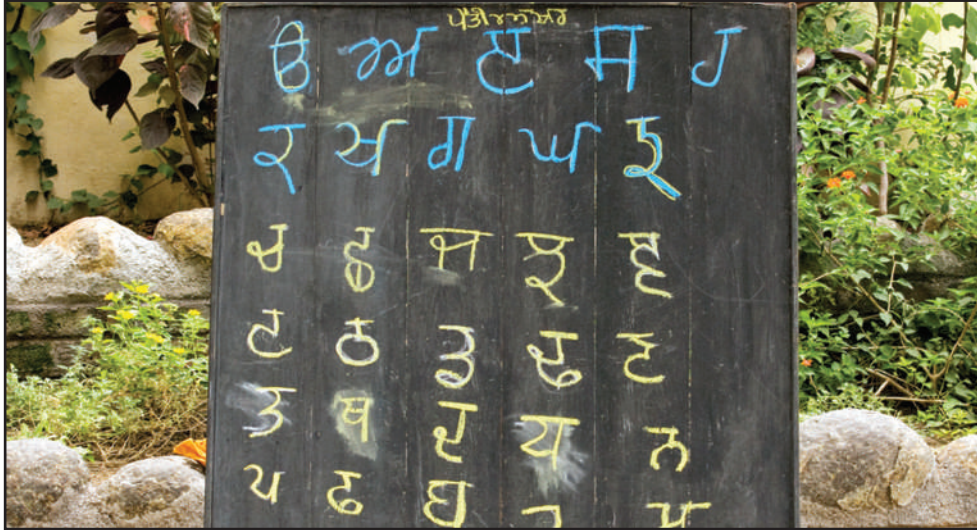 ੳ ਅ ੲ ਸ ਹ
ਕ ਖ ਗ ਘ ਙ
ਚ ਛ ਜ ਝ ਞ
ਟ ਠ ਡ ਢ ਣ
ਤ ਥ ਦ ਧ ਨ
ਪ ਫ ਬ